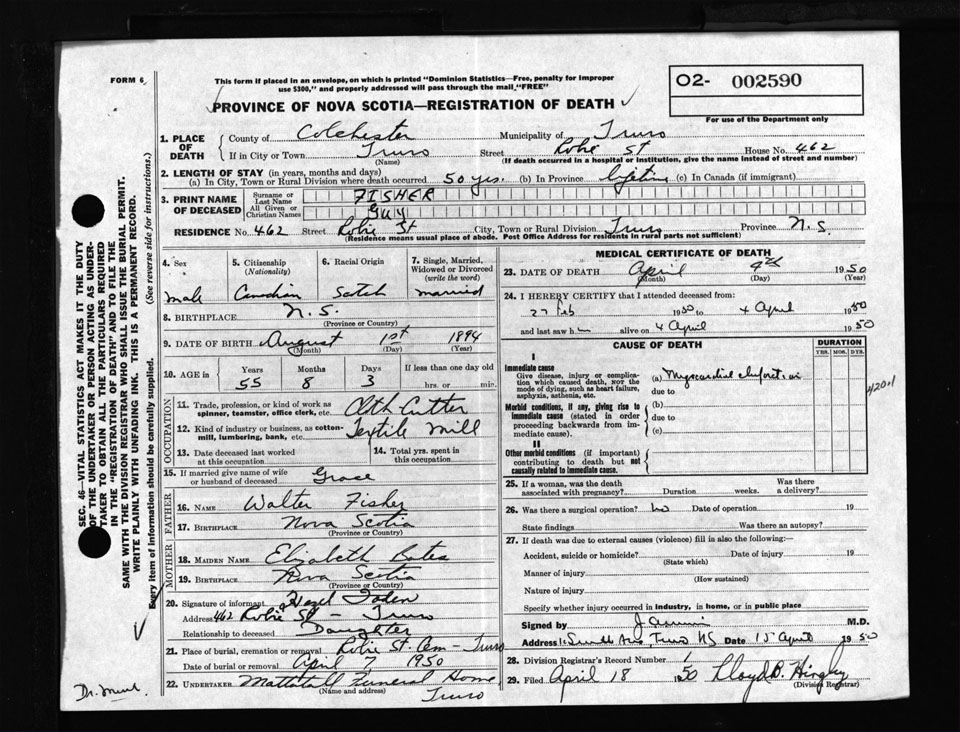 FORM 6
This form if placed in an envelope, on which is printed "Dominion Statistics—Free, penalty for improper
use $300," and properly addressed will pass through the mail "FREE"
O2- 002590
For use of the Department only
PROVINCE OF NOVA SCOTIA—REGISTRATION OF DEATH
1. PLACE OF DEATH
County of Colchester Municipality of Truro
If in City or Town Truro Street Robie St House No. 462
(Name) (If death occurred in a hospital or institution, give the name instead of street and number)
2. LENGTH OF STAY (in years, months and days)
(a) In City, Town or Rural Division where death occurred 50 yrs. (b) In Province lifetime (c) In Canada (if immigrant)
3. PRINT NAME OF DECEASED
Surname or Last Name FISHER
All Given or Christian Names Guy
RESIDENCE No. 462 Street Robie St City, Town or Rural Division Truro Province N.S.
(Residence means usual place of abode. Post Office Address for residents in rural parts not sufficient)
4. Sex male
5. Citizenship (Nationality) Canadian
6. Racial Origin Scotch
7. Single, Married, Widowed or Divorced (write the word) married
8. BIRTHPLACE N.S.
(Province or Country)
9. DATE OF BIRTH August 1st 1894
(Month) (Day) (Year)
10. AGE in Years 55 Months 8 Days 3 If less than one day old hrs. or min.
OCCUPATION
11. Trade, profession, or kind of work as spinner, teamster, office clerk, etc. Cloth Cutter
12. Kind of industry or business, as cotton-mill, lumbering, bank, etc. Textile Mill
13. Date deceased last worked at this occupation
14. Total yrs. spent in this occupation
15. If married give name of wife or husband of deceased Grace
FATHER
16. NAME Walter Fisher
17. BIRTHPLACE Nova Scotia
(Province or Country)
MOTHER
18. MAIDEN NAME Elizabeth
19. BIRTHPLACE Nova Scotia
(Province or Country)
20. Signature of informant Hazel
Address 462 Robie St - Truro
Relationship to deceased Daughter
21. Place of burial, cremation or removal Robie St. Cem - Truro
Date of burial or removal April 7 1950
22. UNDERTAKER Mattatall Funeral Home
(Name and address) Truro
MEDICAL CERTIFICATE OF DEATH
23. DATE OF DEATH April 4th 1950
(Month) (Day) (Year)
24. I HEREBY CERTIFY that I attended deceased from:
27 Feb 1950 to 4 April 1950
and last saw him alive on 4 April 1950
CAUSE OF DEATH
DURATION
YRS. MOS. DYS.
I
Immediate cause
Give disease, injury or complication which caused death, NOT the mode of dying, such as heart failure, asphyxia, asthenia, etc.
(a) Myocardial Infarction
due to
420.1
Morbid conditions, if any, giving rise to immediate cause (stated in order proceeding backwards from immediate cause).
(b)
due to
(c)
II
Other morbid conditions (if important) contributing to death but not causally related to immediate cause.
25. If a woman, was the death associated with pregnancy? Duration weeks. Was there a delivery?
26. Was there a surgical operation? no Date of operation 19
State findings Was there an autopsy?
27. If death was due to external causes (violence) fill in also the following:—
Accident, suicide or homicide? Date of injury 19
(State which)
Manner of injury
(How sustained)
Nature of injury
Specify whether injury occurred in industry, in home, or in public place
Signed by M.D.
Address Truro NS Date 15 April 1950
28. Division Registrar's Record Number
29. Filed April 18 1950 Lloyd B. Hingley
(Division Registrar)
SEC. 46—VITAL STATISTICS ACT MAKES IT THE DUTY
OF THE UNDERTAKER OR PERSON ACTING AS UNDER-
TAKER TO OBTAIN ALL THE PARTICULARS REQUIRED
IN THE "REGISTRATION OF DEATH" AND TO FILE THE
SAME WITH THE DIVISION REGISTRAR WHO SHALL ISSUE THE BURIAL PERMIT.
WRITE PLAINLY WITH UNFADING INK. THIS IS A PERMANENT RECORD.
Every item of information should be carefully supplied. (See reverse side for instructions.)